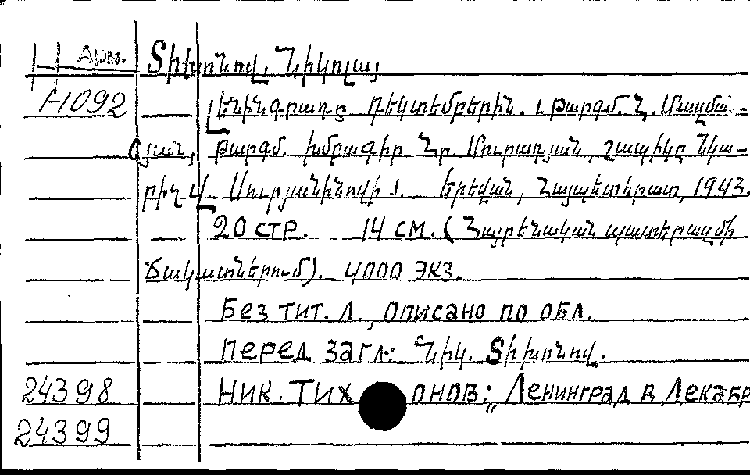 Տիխոնով, Նիկոլայ
Н1092 Լենինգրադը դեկտեմբերին. Թարգմ.
թարգմ. խմբագիր Հր. Մուրադյան, շապիկը նկա-
րիչ Վ. Երևան, Հայպետհրատ, 1943.
20 стр. 14 см. (Հայրենական պատերազմի
ճակատներում). 4000 экз.
Без тит. л., описано по обл.
Перед загл: Նիկ. Տիխոնով.
24398 Ник. Тихонов: „Ленинград в Декабр
24399